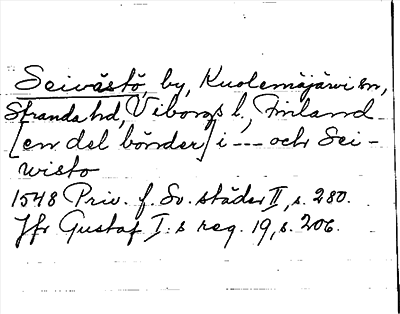 Seivästö, by, Kuolemajärvi sn,
Stranda hd, Viborgs l., Finland
[en del bönder] i --- och Sei-
wisto
1548 Priv. f. Sv. städer II, s. 280.
Jfr Gustaf I:s reg. 19, s. 206.